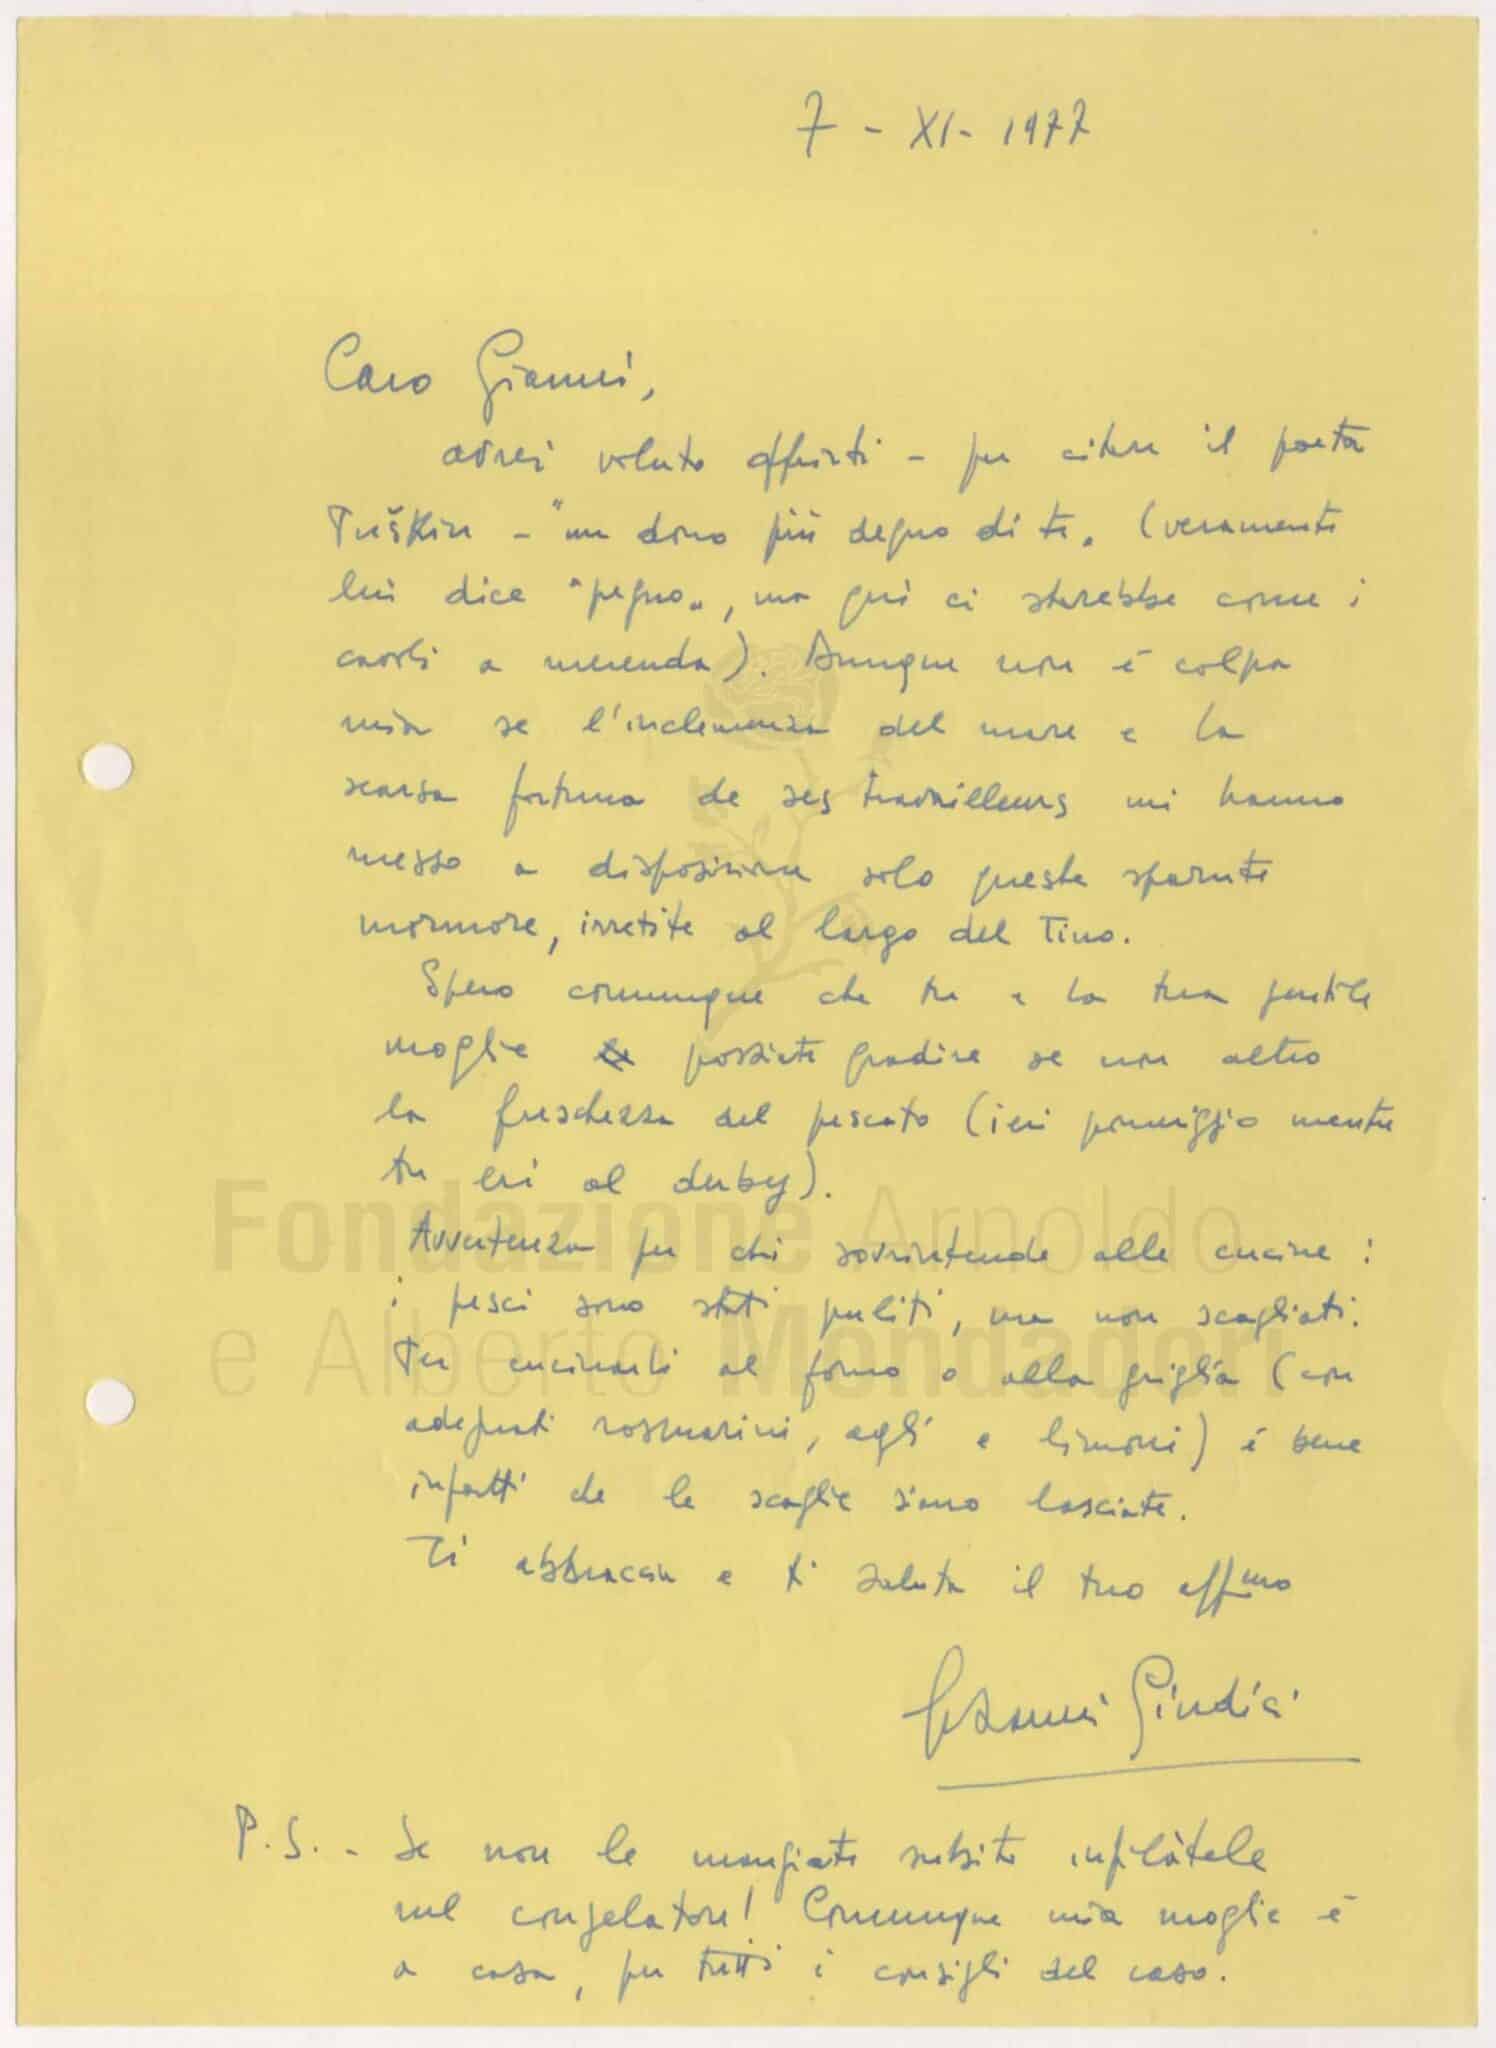 7 - XI - 1977
Caro Gianni,
avrei voluto offrirti - per citare il poeta
Puškin - "un dono più degno di te. (veramente
lui dice "pegno", ma qui ci starebbe come i
cavoli a merenda). Dunque non è colpa
mia se l'inclemenza del mare e la
scarsa fortuna de ses travailleurs mi hanno
messo a disposizione solo queste sparute
mormore, irretite al largo del Tino.
Spero comunque che tu e la tua gentile
moglie possiate gradire se non altro
la freschezza del pescato (ieri pomeriggio mentre
tu eri al derby).
Avvertenza per chi sovrintende alle cucine:
i pesci sono stati puliti, ma non scagliati.
Per cucinarli al forno o alla griglia (con
adeguati rosmarini, agli e limoni) è bene
infatti che le scaglie siano lasciate.
Ti abbraccia e ti saluta il tuo aff.mo
Giovanni Giudici
P.S. - Se non le mangiate subito infilàtele
nel congelatore! Comunque mia moglie è
a casa, per tutti i consigli del caso.
Fondazione Arnoldo
e Alberto Mondadori